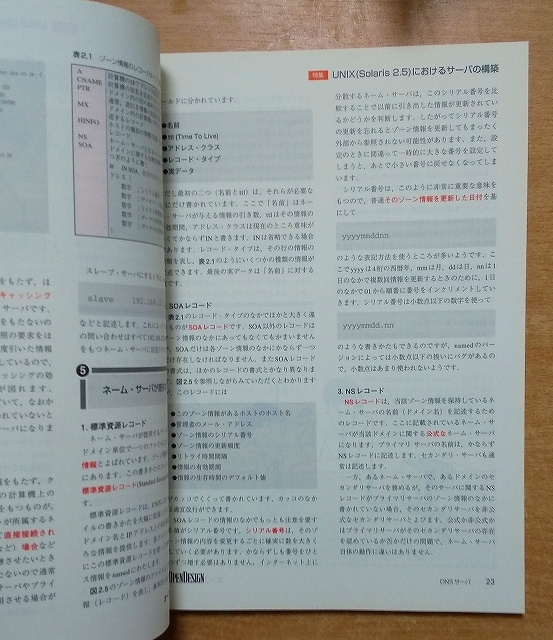 表2.1 ゾーン情報のレコードタイ
A
CNAME
PTR
MX
HINFO
NS
SOA
数字
数字
数字
数字
数字
をもたず，は
キャッシング
サーバです。
をもたないの
照の要求をは
度引いた情報
しているので，
ャッシングの効
が図れます。
ていて，なおか
されていないと
サーバになりま
をもたず，ク
の計算機上の
をもつものが，
ーバが所属するネ
て直接接続され
など）場合など
壊させたいとき
たないので通常
サーバやプライ
用させる場合が
スレーブ・サーバにすると
slave 192.168.
などと記述します。これに
の問い合わせはすべて192.16
をもつネーム・サーバに送
5
ネーム・サーバが提
1. 標準資源レコード
ネーム・サーバが提供する
ドメイン単位で一つのファイル
情報とよばれています。ゾーン
にあります。この書きかたの
標準資源レコード(Standard Resou
標準資源レコードは，UNIXの
イルの書きかたを大幅に拡張し
ドメイン名とIPアドレスの
ろな情報を提供します。
にこの標準資源レコードを
ス情報をnamedにわたします。
図2.5のゾーン情報のファイル
報（レコード）を表し，基本的に
特集 UNIX(Solaris 2.5)におけるサーバの構築
ールドに分かれています。
●名前
●ttl (Time To Live)
●アドレス・クラス
●レコード・タイプ
●実データ
だし最初の二つ（名前とttl）は，それらが必要な
にだけ書かれています。ここで「名前」はネー
・サーバが与える情報の引き数，ttlはその情報の
効期間，アドレス・クラスは現在のところ意味が
くてかならずINと書きます。INは省略できる場合
あります。レコード・タイプは，その行の情報の
類を表し，表2.1のようにいくつかの種類の情報が
述できます。最後の実データは「名前」に対する
です。
SOAレコード
表2.1のレコード・タイプのなかでほかと大きく違
ものがSOAレコードです。SOA以外のレコードは
ーン情報のなかにあってもなくてもかまいません
SOAだけは各ゾーン情報のなかにかならず一つ
け存在しなければなりません。またSOAレコード
書式は，ほかのレコードの書式とかなり異なりま
。図2.5を参照しながらみていただくとわかります
，このレコードには
●このゾーン情報があるホストのホスト名
●管理者のメール・アドレス
●ゾーン情報のシリアル番号
●ゾーン情報の更新頻度
●リトライ時間間隔
●情報の有効期間
●情報の生存時間のデフォルト値
カッコでくくって書かれています。カッコのなか
適宜改行ができます。
SOAレコードの情報のなかでもっとも注意を要す
値がシリアル番号です。シリアル番号は，そのゾ
ン情報の内容を変更するごとに確実に数を大きく
していく必要があります。かならずしも番号をひと
ずつ増す必要はありません。インターネット上に
分散するネーム・サーバは，このシリアル番号を比
較することで以前に引き出した情報が更新されてい
るかどうかを判断します。したがってシリアル番号
の更新を忘れるとゾーン情報を更新してもまったく
外部から参照されない可能性があります。また，設
定のときに間違って一時的に大きな番号を設定して
しまうと，あとで小さい番号に戻せなくなってしま
います。
シリアル番号は，このように非常に重要な意味を
もつので，普通そのゾーン情報を更新した日付を基
にして
yyyymmddnn
のような表記方法を使うところが多いようです。こ
こでyyyyは4桁の西暦年，mmは月，ddは日，nnは1
日のなかで複数回情報を更新するときのために，1日
のなかで01から順番に番号をインクリメントしてい
きます。シリアル番号は小数点以下の数字を使って
yyyymmdd.nn
のような書きかたもできるのですが，namedのバー
ジョンによっては小数点以下の扱いにバグがあるの
で，小数点はあまり使わないようです。
3. NSレコード
NSレコードは，当該ゾーン情報を保持しているネ
ーム・サーバの名前（ドメイン名）を記述するため
のレコードです。ここに記載されているネーム・サ
ーバが当該ドメインに関する公式なネーム・サーバ
になります。プライマリ サーバの名前は，かならず
NSレコードに記述します。セカンダリ・サーバも通
常は記述します。
一方，あるネーム・サーバで，あるドメインのセ
カンダリサーバを務めるが，そのサーバに関するNS
レコードがプライマリサーバのゾーン情報のなかに
書かれていない場合，そのセカンダリサーバを非公
式なセカンダリサーバとよびます。公式か非公式か
はプライマリサーバがそのセカンダリサーバの存在
を認めているか否かだけの問題で，ネーム・サーバ
自体の動作に違いはありません。
OPENDESIGN
DNSサーバ 23